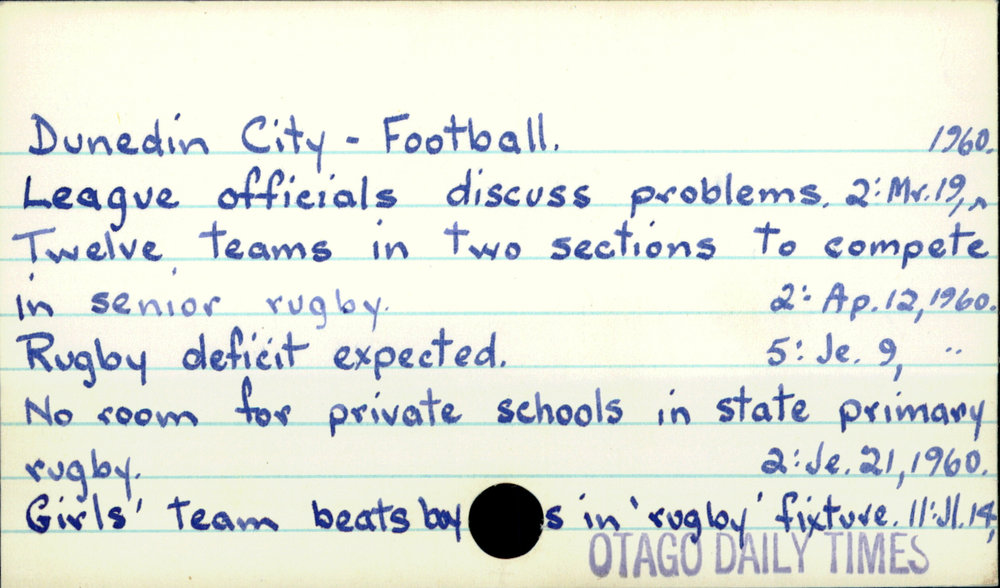 Dunedin City - Football. 1960.
League officials discuss problems. 2: Mr. 19, "
Twelve teams in two sections to compete
in senior rugby. 2: Ap. 12, 1960.
Rugby deficit expected. 5: Je. 9, "
No room for private schools in state primary
rugby. 2: Je. 21, 1960.
Girls' team beats boy s in 'rugby' fixture. 11: Jl. 14,
OTAGO DAILY TIMES